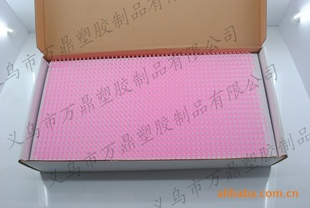 义乌市万鼎塑胶制品有限公司
义乌市万鼎塑胶制品有限公司
义乌市万鼎塑胶制品有限公司
alibaba.com.cn